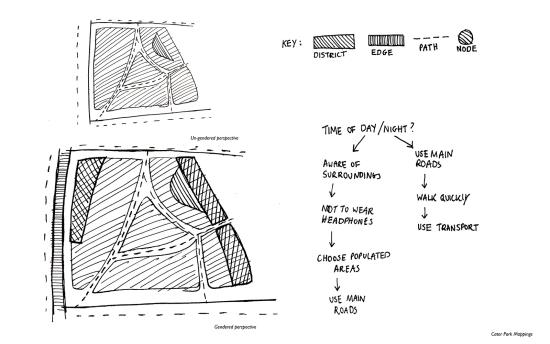 KEY:
DISTRICT
EDGE
PATH
NODE
Un-gendered perspective
TIME OF DAY/NIGHT?
AWARE OF
SURROUNDINGS
NOT TO WEAR
HEADPHONES
CHOOSE POPULATED
AREAS
USE MAIN
ROADS
USE MAIN
ROADS
WALK QUICKLY
USE TRANSPORT
Gendered perspective
Cator Park Mappings